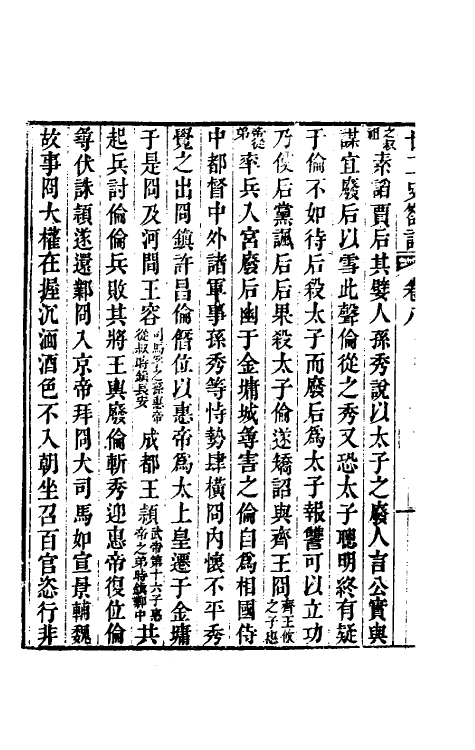 廿二史劄記 卷八
之叔祖素諂賈后其嬖人孫秀說以太子之廢人言公實與
謀宜廢后以雪此聲倫從之秀又恐太子聰明終有疑
于倫不如待后殺太子而廢后為太子報讐可以立功
乃使后黨諷后后果殺太子倫遂矯詔與齊王冏齊王攸之子惠
帝從弟率兵入宮廢后幽于金墉城尋害之倫自為相國侍
中都督中外諸軍事孫秀等恃勢肆橫冏內懷不平秀
覺之出冏鎮許昌倫僭位以惠帝為太上皇遷于金墉
于是冏及河間王容司馬孚之孫惠帝從叔時鎮長安成都王頴武帝第十六子惠帝之弟時鎮鄴中共
起兵討倫倫兵敗其將王輿廢倫斬秀迎惠帝復位倫
尋伏誅頴遂還鄴冏入京帝拜冏大司馬如宣景輔魏
故事冏大權在握沉湎酒色不入朝坐召百官恣行非